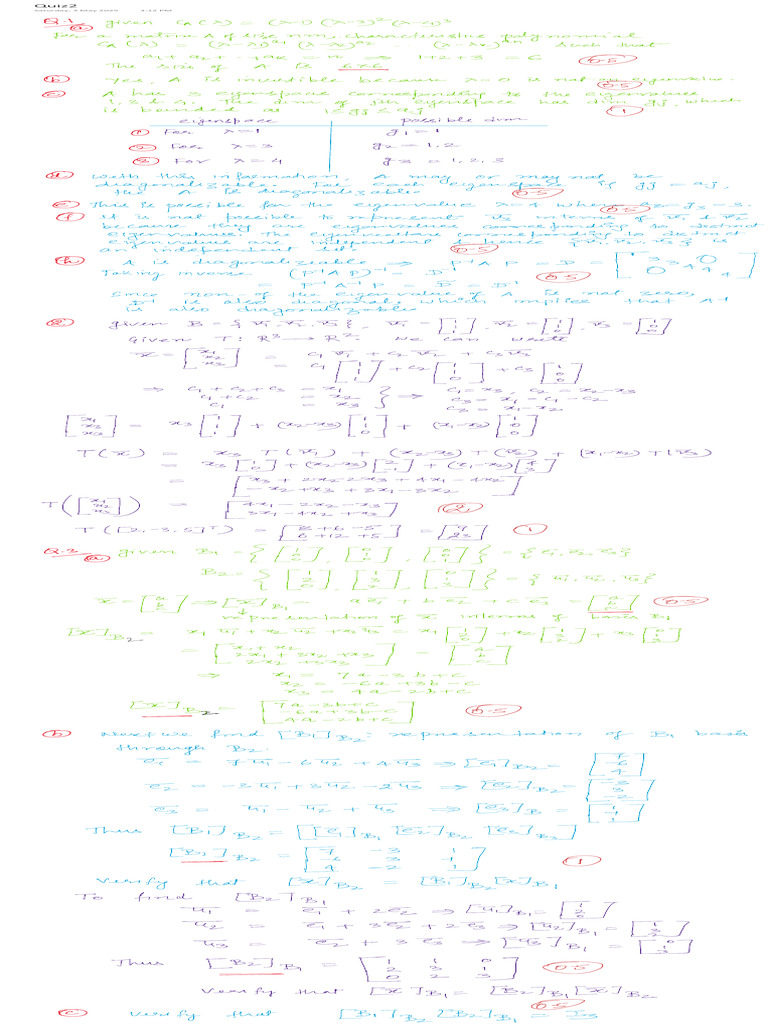 Quiz2
Saturday, 3 May 2025 4:13 PM
Q.1 a given C_A(λ) = (λ-1)(λ-3)²(λ-4)³
For a matrix A of size nxn, characteristic polynomial
C_A(λ) = (λ-λ₁)^a₁ (λ-λ₂)^a₂ ... (λ-λₖ)^aₙ such that
a₁ + a₂ + ... + aₖ = n ⇒ 1+2+3 = 6
The size of A is 6x6 0.5
b Yes, A is invertible because λ=0 is not an eigenvalue. 0.5
c A has 3 eigenspace corresponding to the eigenvalues
1, 3 & 4. The dim of jth eigenspace has dim gj, which
is bounded as 1≤gj≤aj 1
eigenspace possible dim
1 For λ=1 g₁ = 1
2 For λ=3 g₂ = 1, 2
3 For λ=4 g₃ = 1, 2, 3
d With this information, A may or may not be
diagonalizable. For each eigenspace if gj = aj,
the A is diagonalizable 0.5
e This is possible for the eigenvalue λ=4 when g₃ = 3. 0.5
f It is not possible to represent v₃ interms of v₁ & v₂
because they are eigenvalues corresponding to distinct
eigenvalues. The eigenvectors corresponding to distinct
eigenvalues are independent & hence {v₁, v₂, v₃} is
an independent set. 0.5
h A is diagonalizeable ⇒ P⁻¹AP = D = [1 3 3 0 0 4 4 4]
Taking inverse (P⁻¹AP)⁻¹ = D⁻¹ 0.5
= P⁻¹A⁻¹P = D⁻¹
Since non of the eigenvalue of A is not zero,
D⁻¹ is also diagonal, which implies that A⁻¹
is also diagonalizable
2 given B = {v₁, v₂, v₃}, v₁ = [1 1 1], v₂ = [1 1 0], v₃ = [1 0 0]
Given T: R³ → R². We can write
x = [x₁ x₂ x₃] = c₁v₁ + c₂v₂ + c₃v₃
= c₁[1 1 1] + c₂[1 1 0] + c₃[1 0 0]
⇒ c₁ + c₂ + c₃ = x₁
c₁ + c₂ = x₂
c₁ = x₃
⇒ c₁ = x₃, c₂ = x₂-x₃
c₃ = x₁ - c₁ - c₂
c₃ = x₁-x₂
[x₁ x₂ x₃] = x₃[1 1 1] + (x₂-x₃)[1 1 0] + (x₁-x₂)[1 0 0]
T(x) = x₃ T(v₁) + (x₂-x₃) T(v₂) + (x₁-x₂) T(v₃)
= x₃[1 0] + (x₂-x₃)[2 -1] + (x₁-x₂)[4 3]
= [x₃ + 2x₂ - 2x₃ + 4x₁ - 4x₂
-x₂ + x₃ + 3x₁ - 3x₂]
T([x₁ x₂ x₃]) = [4x₁ - 2x₂ - x₃
3x₁ - 4x₂ + x₃] 2
T([2, -3, 5]ᵀ) = [8 + 6 - 5
6 + 12 + 5] = [9 23] 1
Q.3 a given B₁ = {[1 0 0], [0 1 0], [0 0 1]} = {e₁, e₂, e₃}
B₂ = {[1 2 0], [1 3 2], [0 1 3]} = {u₁, u₂, u₃}
x = [a b c] ⇒ [x]_B₁ = ae₁ + be₂ + ce₃ = [a b c] 0.5
representation of x interms of basis B₁
[x]_B₂ = x₁u₁ + x₂u₂ + x₃u₃ = x₁[1 2 0] + x₂[1 3 2] + x₃[0 1 3]
= [x₁ + x₂
2x₁ + 3x₂ + x₃
2x₂ + 3x₃] = [a b c]
⇒ x₁ = 7a - 3b + c
x₂ = -6a + 3b - c
x₃ = 4a - 2b + c
[x]_B₂ = [7a - 3b + c
-6a + 3b - c
4a - 2b + c] 0.5
b Next we find [B₁]_B₂: representation of B₁ basis
through B₂.
e₁ = 7u₁ - 6u₂ + 4u₃ ⇒ [e₁]_B₂ = [7 -6 4]
e₂ = -3u₁ + 3u₂ - 2u₃ ⇒ [e₂]_B₂ = [-3 3 -2]
e₃ = u₁ - u₂ + u₃ ⇒ [e₃]_B = [1 -1 1]
Thus [B₁]_B₂ = [[e₁]_B₁ [e₂]_B₂ [e₃]_B₂]
[B₁]_B₂ = [7 -3 1
-6 3 -1
4 -2 1] 1
Verify that [x]_B₂ = [B₁]_B₂ [x]_B₁
To find [B₂]_B₁
u₁ = e₁ + 2e₂ ⇒ [u₁]_B₁ = [1 2 0]
u₂ = e₁ + 3e₂ + 2e₃ ⇒ [u₂]_B₁ = [1 3 2]
u₃ = e₂ + 3e₃ ⇒ [u₃]_B₁ = [0 1 3]
Thus [B₂]_B₁ = [1 1 0
2 3 1
0 2 3] 0.5
Verify that [x]_B₁ = [B₂]_B₁ [x]_B₂
c Verify that [B₁]_B₂ [B₂]_B₁ = I₃ 0.5